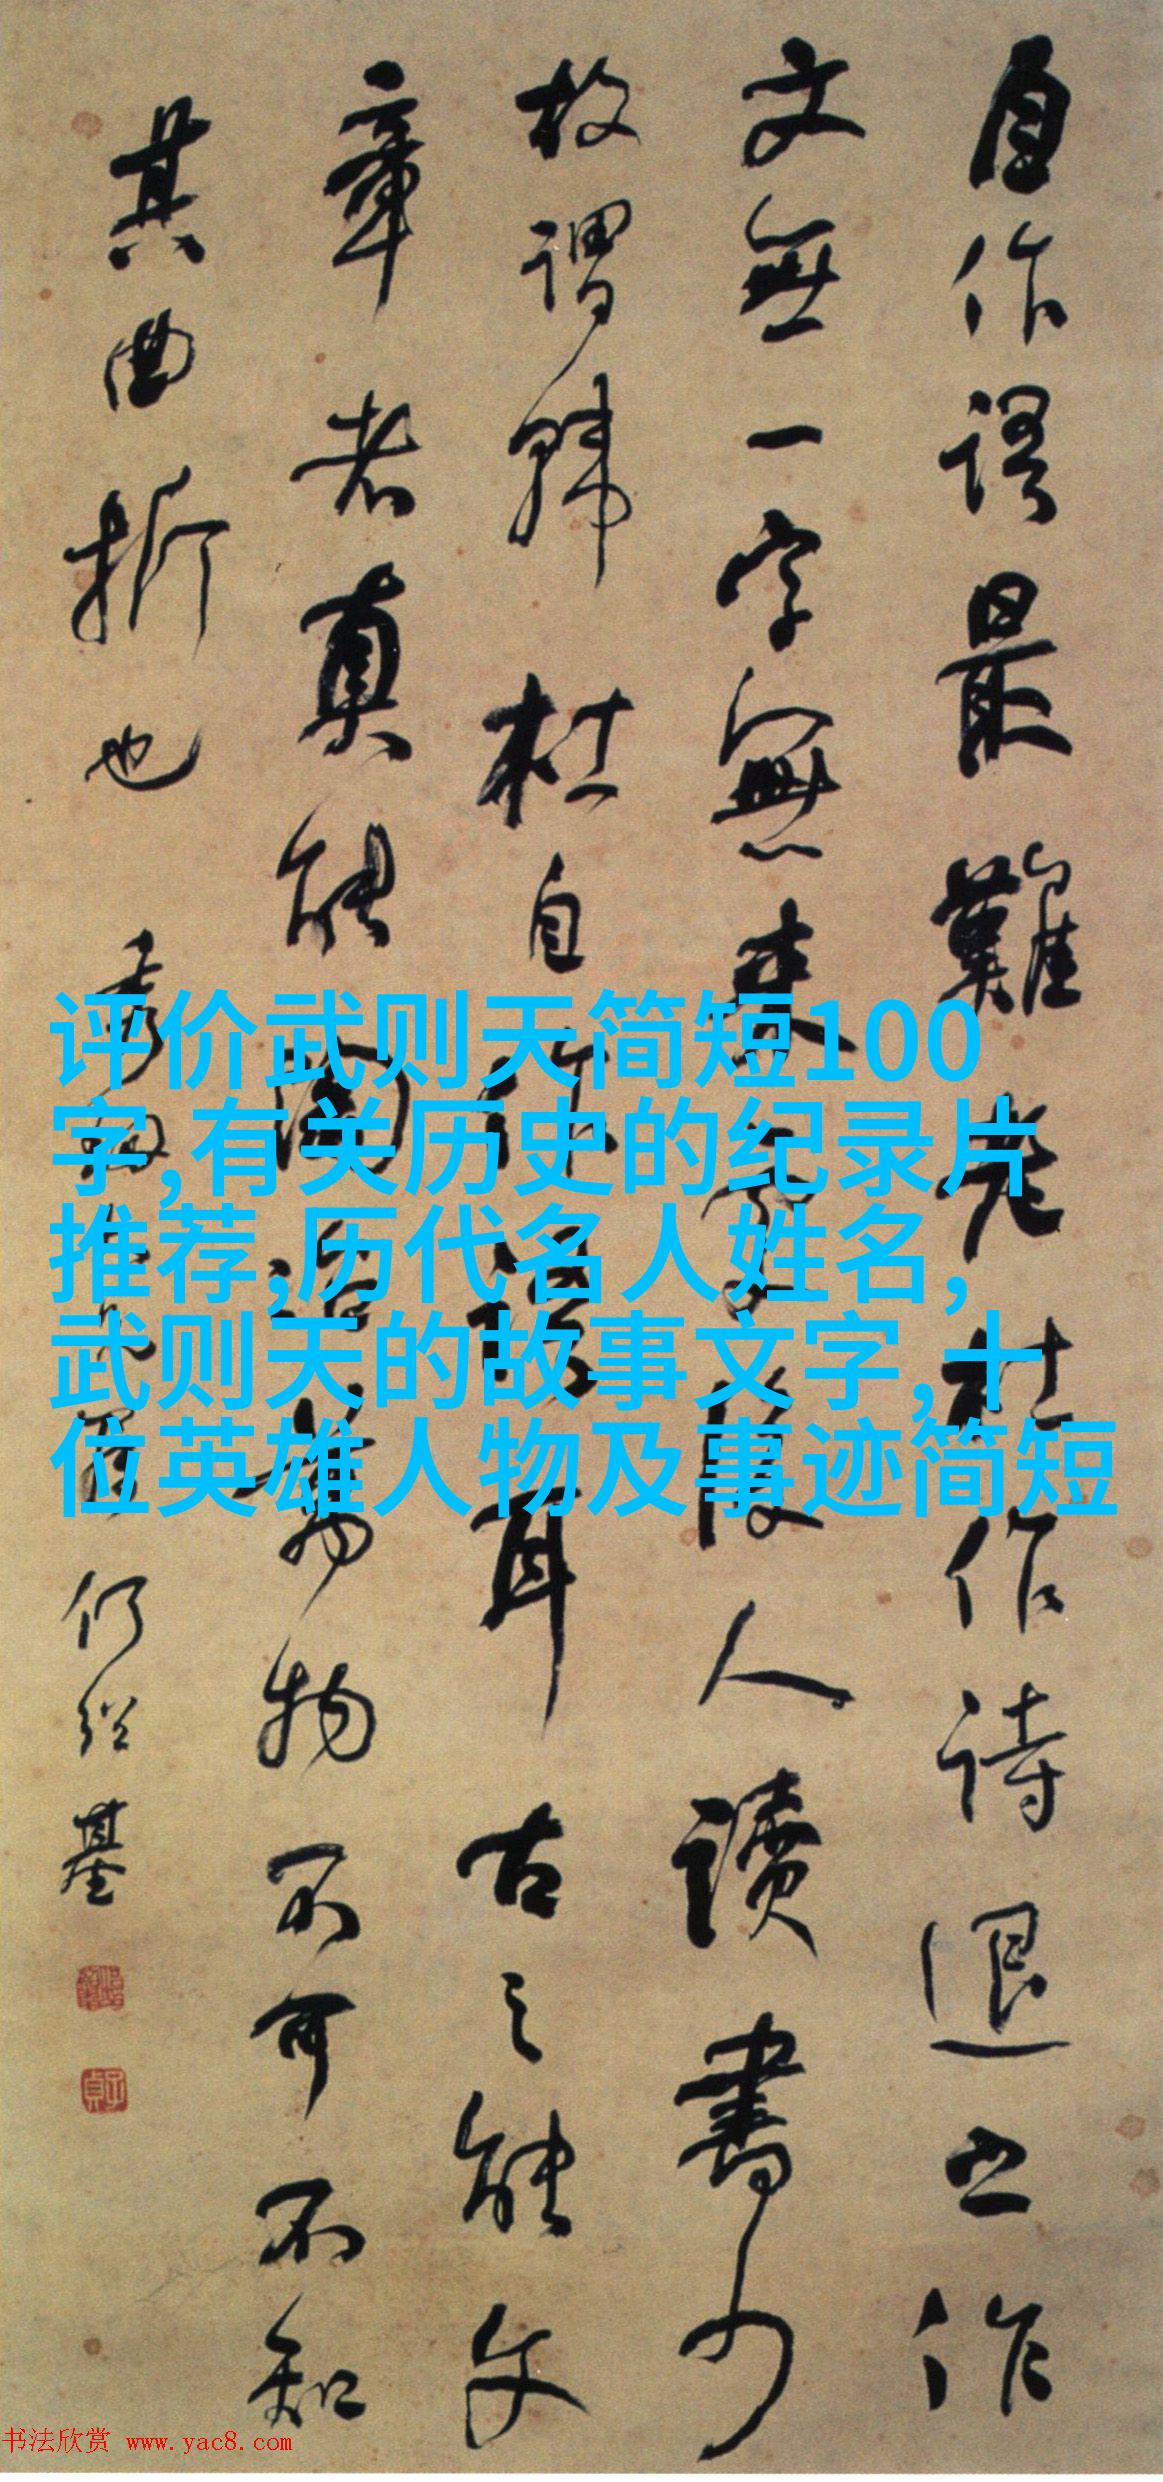 自作語最難老杜作詩退之作
文無一字無來處後人讀書少
故謂韓杜自作語耳古之能文
章者真能陶冶萬物
不可不知
其曲折也
何紹基
评价武则天简短100
字,有关历史的纪录片
推荐,历代名人姓名,
武则天的故事文字,十
位英雄人物及事迹简短
书法欣赏 www.yac8.com